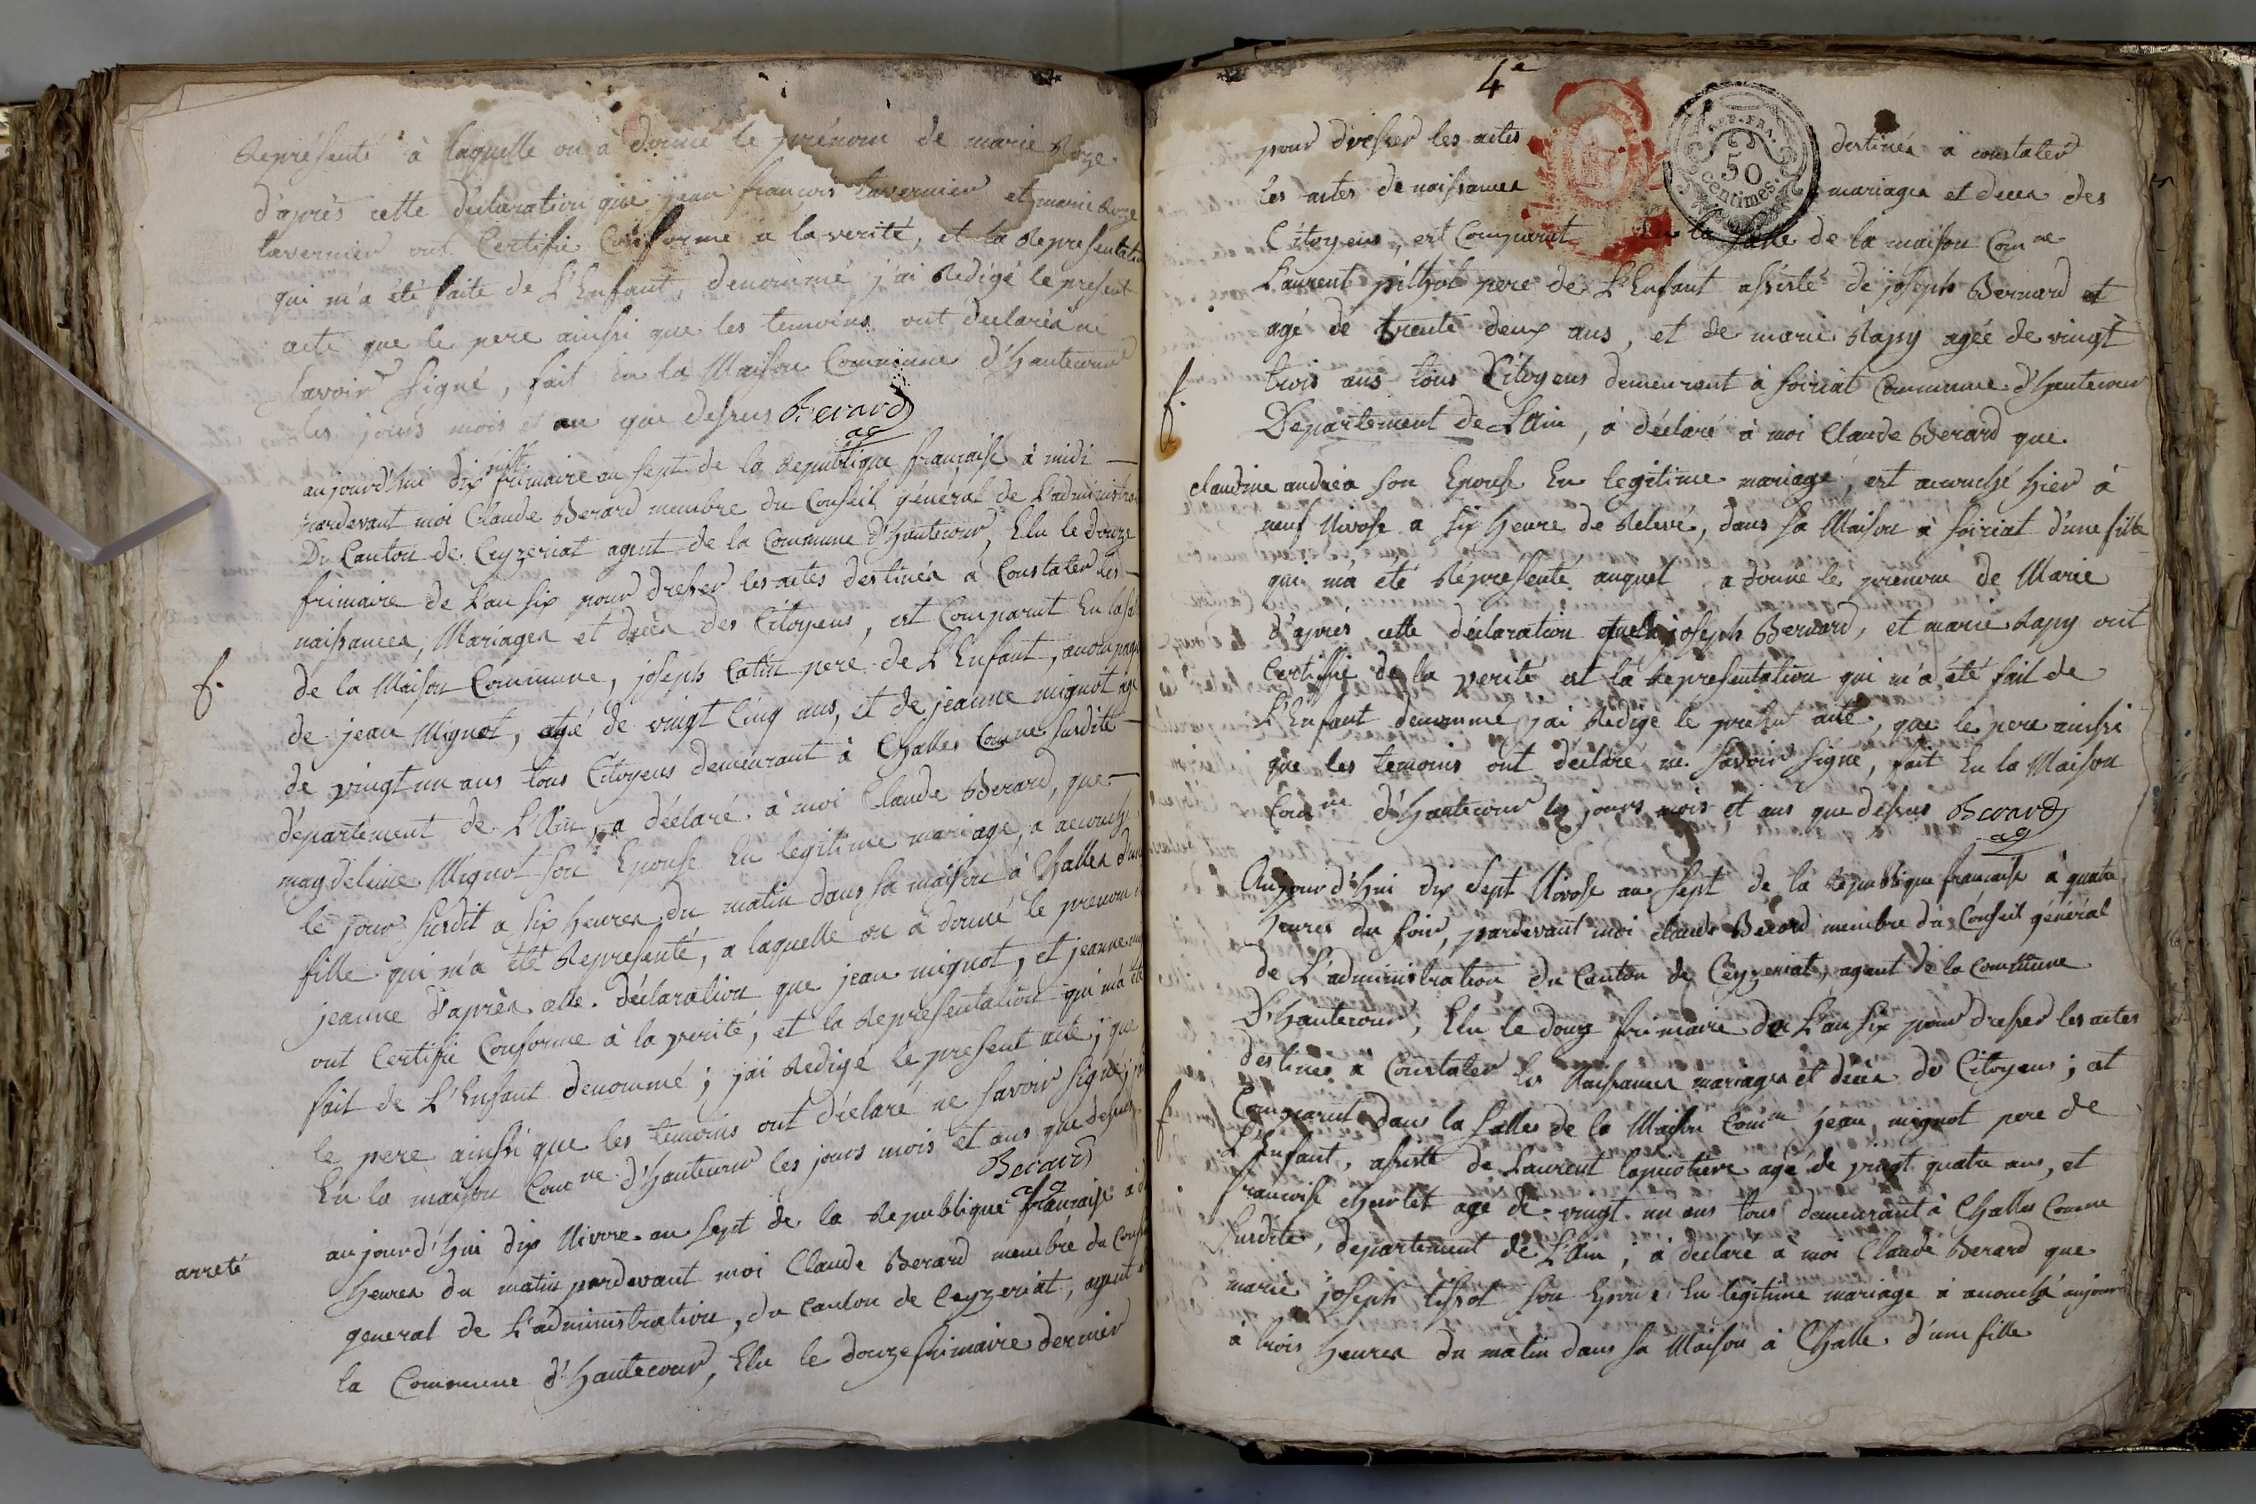 Représenté à laquelle on a donné le prénom de marie Roze
d'après cette déclaration que jean françois tavernier et marie Roze
tavernier ont Certifié Conforme a la verité, et la Representation
qui m'a été faite de L'Enfant denommé j'ai Redigé le present
acte que le pere ainssi que les temoins ont declarés ne
savoir signé, fait en la Maison Commune d'hautecour
les jours mois et an que dessus Berard
ag
aujourd'hui dix huit frimaire an sept de la Republique française à midi
pardevant moi Claude Berard membre du Conseil général de L'administration
Du Canton de Ceyzeriat agent de la Commune d'hautecour, Elu le douze
frimaire de L'an six pour dresser les actes destinés à Constater les
naissances, Mariages et décès des Citoyens, est Comparut En la sa
de la Maison Commune, joseph Catin pere de L'Enfant, accompagn
f.
de jean Mignot, agé de vingt Cinq ans, et de jeanne mignot age
de vingt un ans tous Citoyens demeurant à Challes Comne susdite
département de L'Ain, a déclaré à moi Claude Berard, que
magdeleine Mignot son Epouse En legitime mariage, a accouché
le jour susdit a six heures du matin dans sa maison à Challes d'une
fille qui m'a été Representé, a laquelle on a donné le prenom
jeanne d'après cette déclaration que jean mignot, et jeanne
ont Certifié Conforme à la verité, et la Représentation qui m'a été
fait de L'Enfant denommé; j'ai Redigé le present acte, que
le pere ainssi que les temoins ont déclaré ne savoir signé,
En la maison Comne d'hautecour les jours mois et ans que dessus
Berard
ag
aujourd'hui dix Nivose an sept de la Republique française a
arreté
heures du matin pardevant moi Claude Berard membre du Cons
general de L'administration, du canton de Ceyzeriat, agent
la Commune d'hautecour, Elu le douze frimaire dernier
4e
pour dresser les actes destinés a constater
les actes de naissances mariages et deces des
Citoyens, est Comparut En la salle de la maison Comne
REP. FRA.
50
centimes.
Laurent pilhot pere de L'Enfant assisté de joseph Bernard et
agé de trente deux ans, et de marie Rapy agée de vingt
trois ans tous Citoyens demeurant à soiriat Commune d'hautecour
f.
Département de L'Ain, a déclaré à moi Claude Berard que
claudine andréa son Epouse En legitime mariage, est accouché hier à
neuf Nivose a six heure de Relevé, dans sa Maison à soiriat d'une fille
qui m'a été Réprésenté auquel a donné le prenom de Marie
d'après cette déclaration que joseph Bernard, et marie Rapy ont
Certiffié de la verité et la Representation qui m'a été fait de
L'Enfant denommé j'ai Redigé le present acte, que le pere ainssi
que les temoins ont déclaré ne savoir signé, fait En la Maison
Comne d'hautecour les jours mois et ans que dessus Berard
ag
Aujourd'hui dix sept Nivose an sept de la République française à quatre
heures du soir, pardevant moi claude Berard membre du Conseil général
de L'administration du Canton de Ceyzeriat, agent de la Commune
D'hautecour, Elu le douze frimaire de L'an six pour dresser les actes
destinés a Constater les Naissances mariages et décès de Citoyens; est
f
Comparut dans la salles de la Maison Comne jean mignot pere de
L'Enfant, assisté de Laurent agé de vingt quatre ans, et
francoise charlet agé de vingt un ans tous demeurant à Challes Comne
susdite, departement de L'Ain; a déclaré a moi Claude Berard que
marie joseph tissot son Epouse En légitime mariage a accouché aujourd
à trois heures du matin dans sa Maison à Challe d'une fille